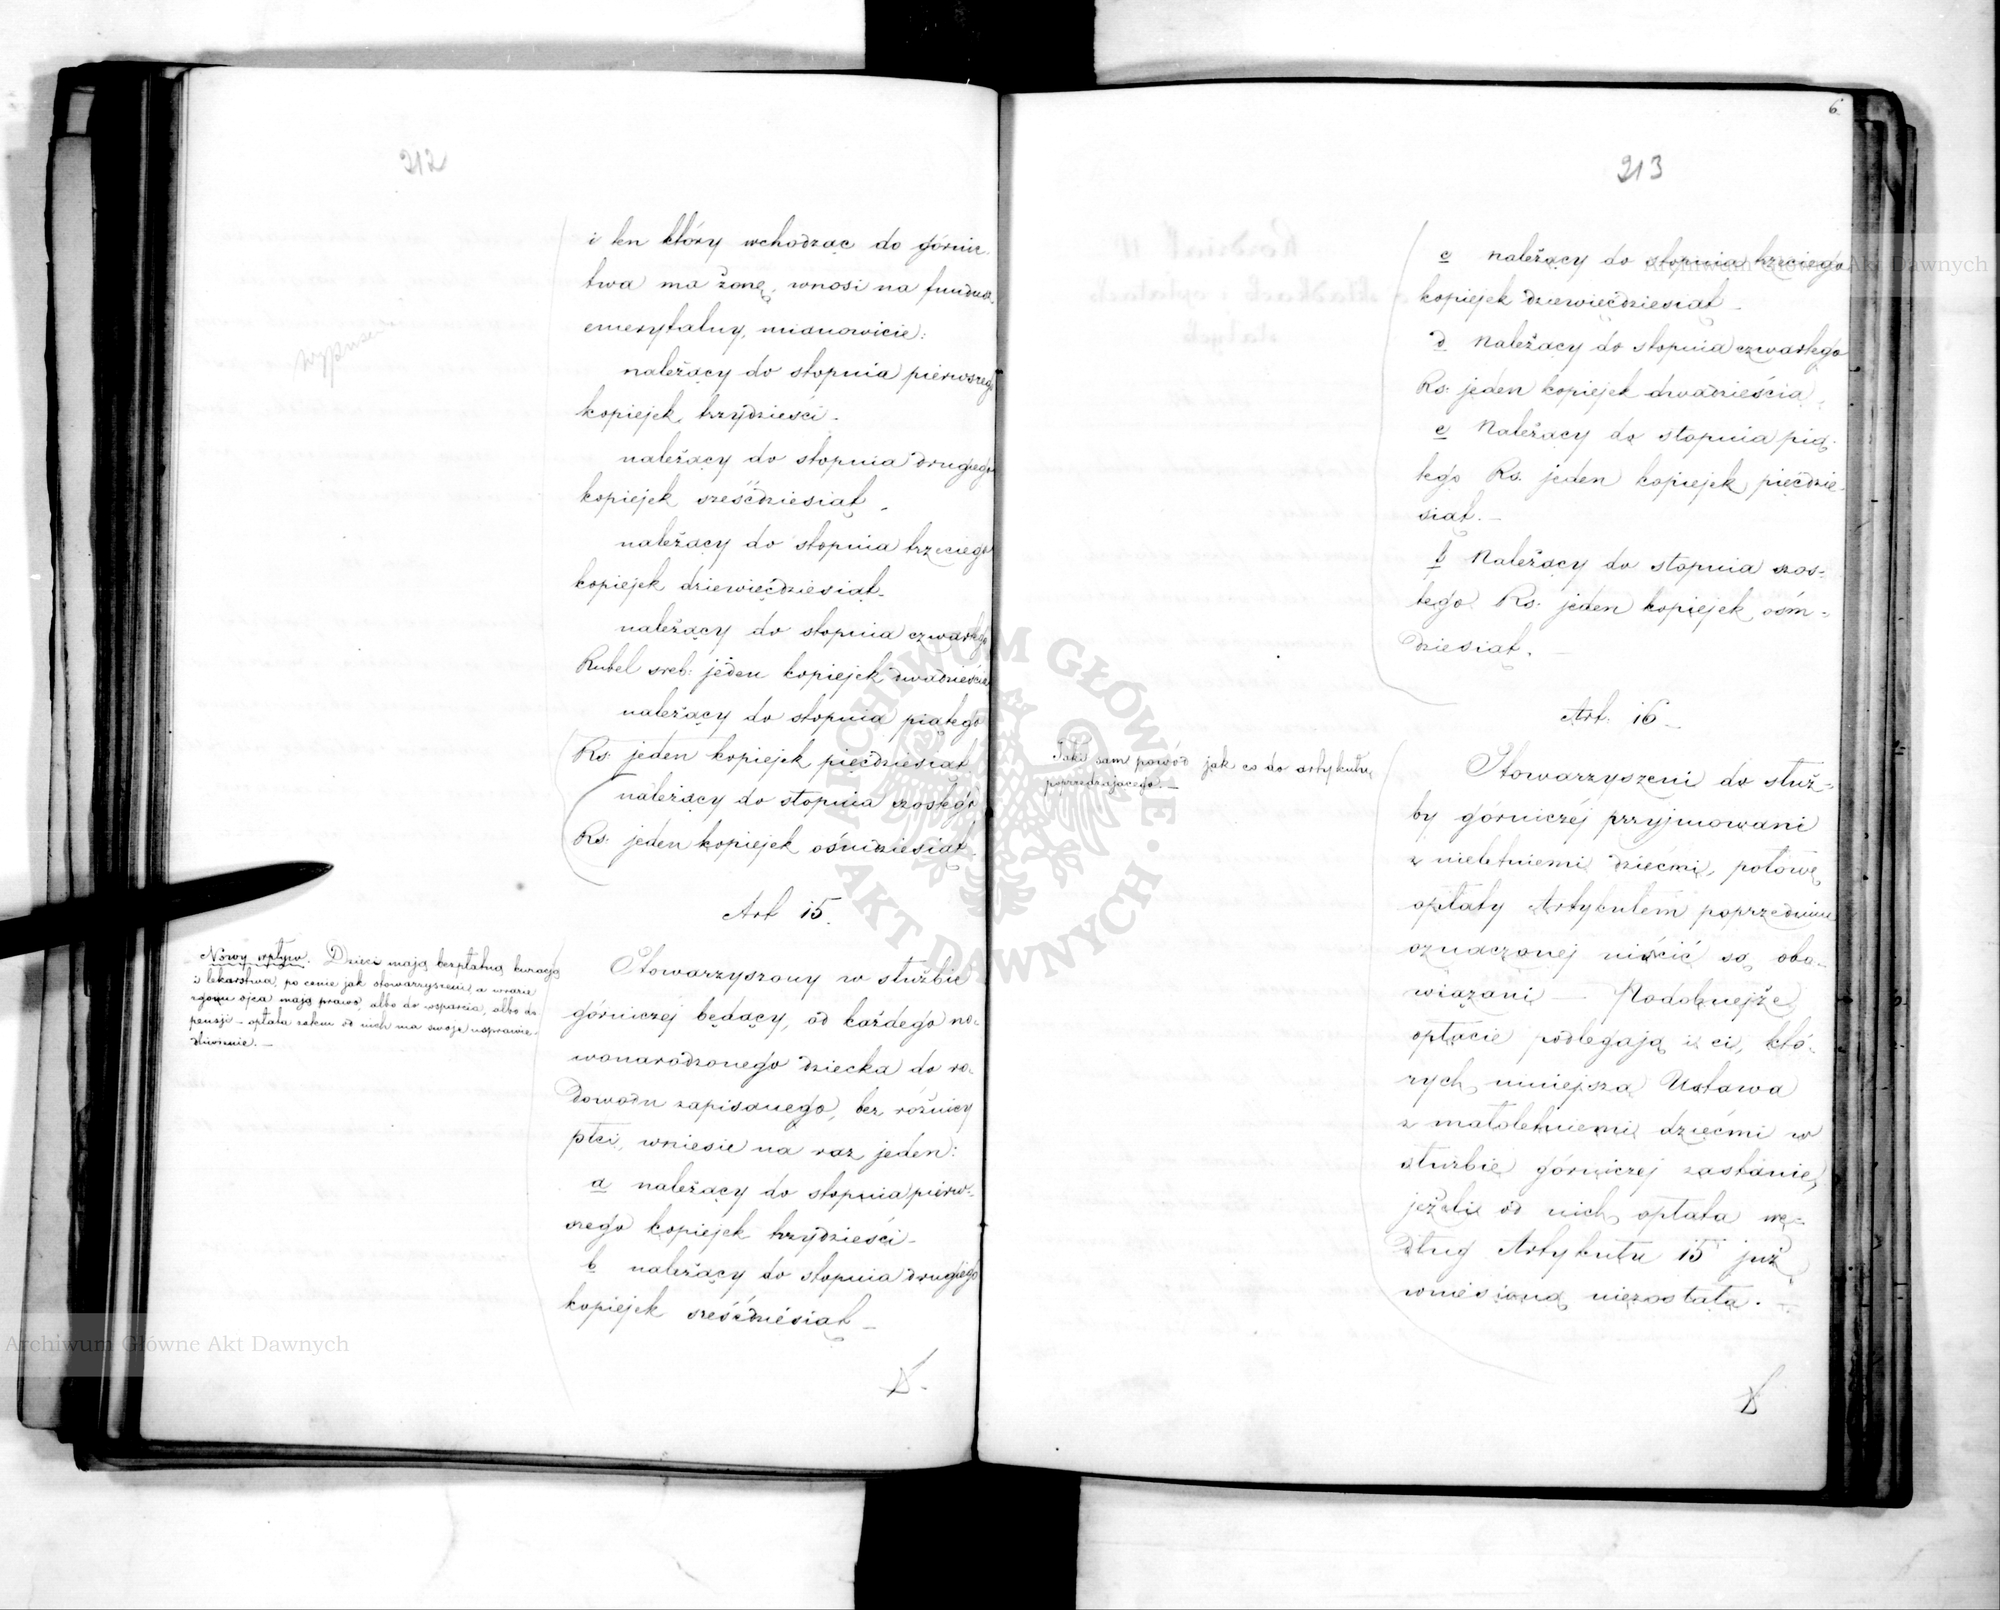 212
i ten który wchodząc do górnic
twa ma żonę, wnosi na fundusz
emerytalny, mianowicie:
należący do stopnia pierwszego
kopiejek trzydzieści.
należący do stopnia drugiego
kopiejek sześćdziesiąt.
należący do stopnia trzeciego
kopiejek dziewięćdziesiąt.
należący do stopnia czwartego
Rubel sreb: jeden kopiejek dwadzieścia
należący do stopnia piątego
Rs: jeden kopiejek pięćdziesiąt
należący do stopnia szóstego
Rs: jeden kopiejek ośmdziesiąt.
Art 15.
Nowy wpływ. Dzieci mają bezpłatną kuracją
i lekarstwa, po cenie jak stowarzyszeni, a w razie
zgonu ojca mają prawo, albo do wsparcia, albo do
pensji – opłata zatem od nich ma swoje usprawie-
dliwienie. —
Stowarzyszony w służbie
górniczej będący, od każdego no-
wonarodzonego dziecka do ro-
dowodu zapisanego, bez różnicy
płci, wniesie na raz jeden:
a należący do stopnia pierw-
szego kopiejek trzydzieści –
b należący do stopnia drugiego
kopiejek sześćdziesiąt –
6
213
c należący do stopnia trzeciego
kopiejek dziewięćdziesiąt –
d należący do stopnia czwartego
Rs: jeden kopiejek dwadzieścia
e Należący do stopnia pią-
tego Rs. jeden kopiejek pięćdzie-
siąt. –
f Należący do stopnia szós-
tego Rs. jeden kopiejek ośm-
dziesiąt. –
Art. 16 –
Taki sam powód jak co do artykułu
poprzedzającego. –
Stowarzyszeni do służ-
by górniczej przyjmowani
z nieletniemi dziećmi, połowę
opłaty Artykułem poprzednim
oznaczonej uiścić są obo-
wiązani — Podobnejże
opłacie podlegają i ci, któ-
rych niniejsza Ustawa
z małoletniemi dziećmi w
służbie górniczej zastanie,
jeżeli od nich opłata we-
dług Artykułu 15 już
wniesioną niezostała. –
ARCHIWUM GŁÓWNE AKT DAWNYCH
Archiwum Główne Akt Dawnych
Archiwum Główne Akt Dawnych